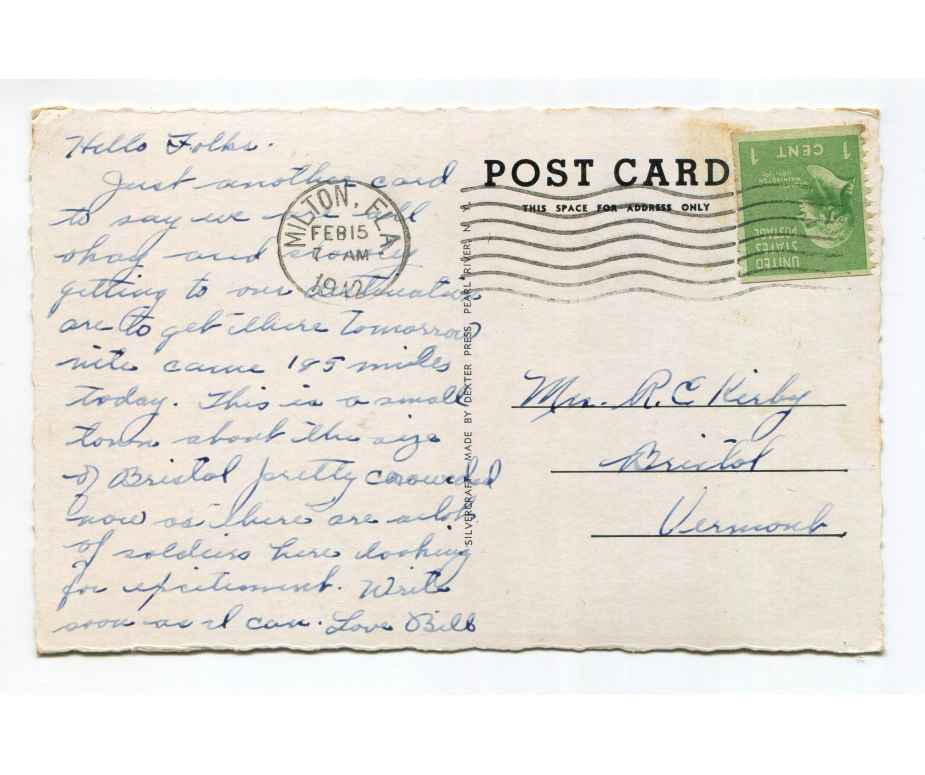 Hello Folks.
Just another card
to say we are all
okay and slowly
getting to our destination
are to get there tomorrow
nite came 185 miles
today. This is a small
town about the size
of Bristol pretty crowded
now as there are a lot
of soldiers here looking
for excitement. Write
soon as I can. Love Bill
MILTON, FLA.
FEB 15
7 AM
1942
POST CARD
THIS SPACE FOR ADDRESS ONLY
SILVERCRAFT MADE BY DEXTER PRESS, PEARL RIVER, N. Y.
1 CENT 1
WASHINGTON
UNITED
STATES
POSTAGE
Mrs. R. C. Kirby
Bristol
Vermont